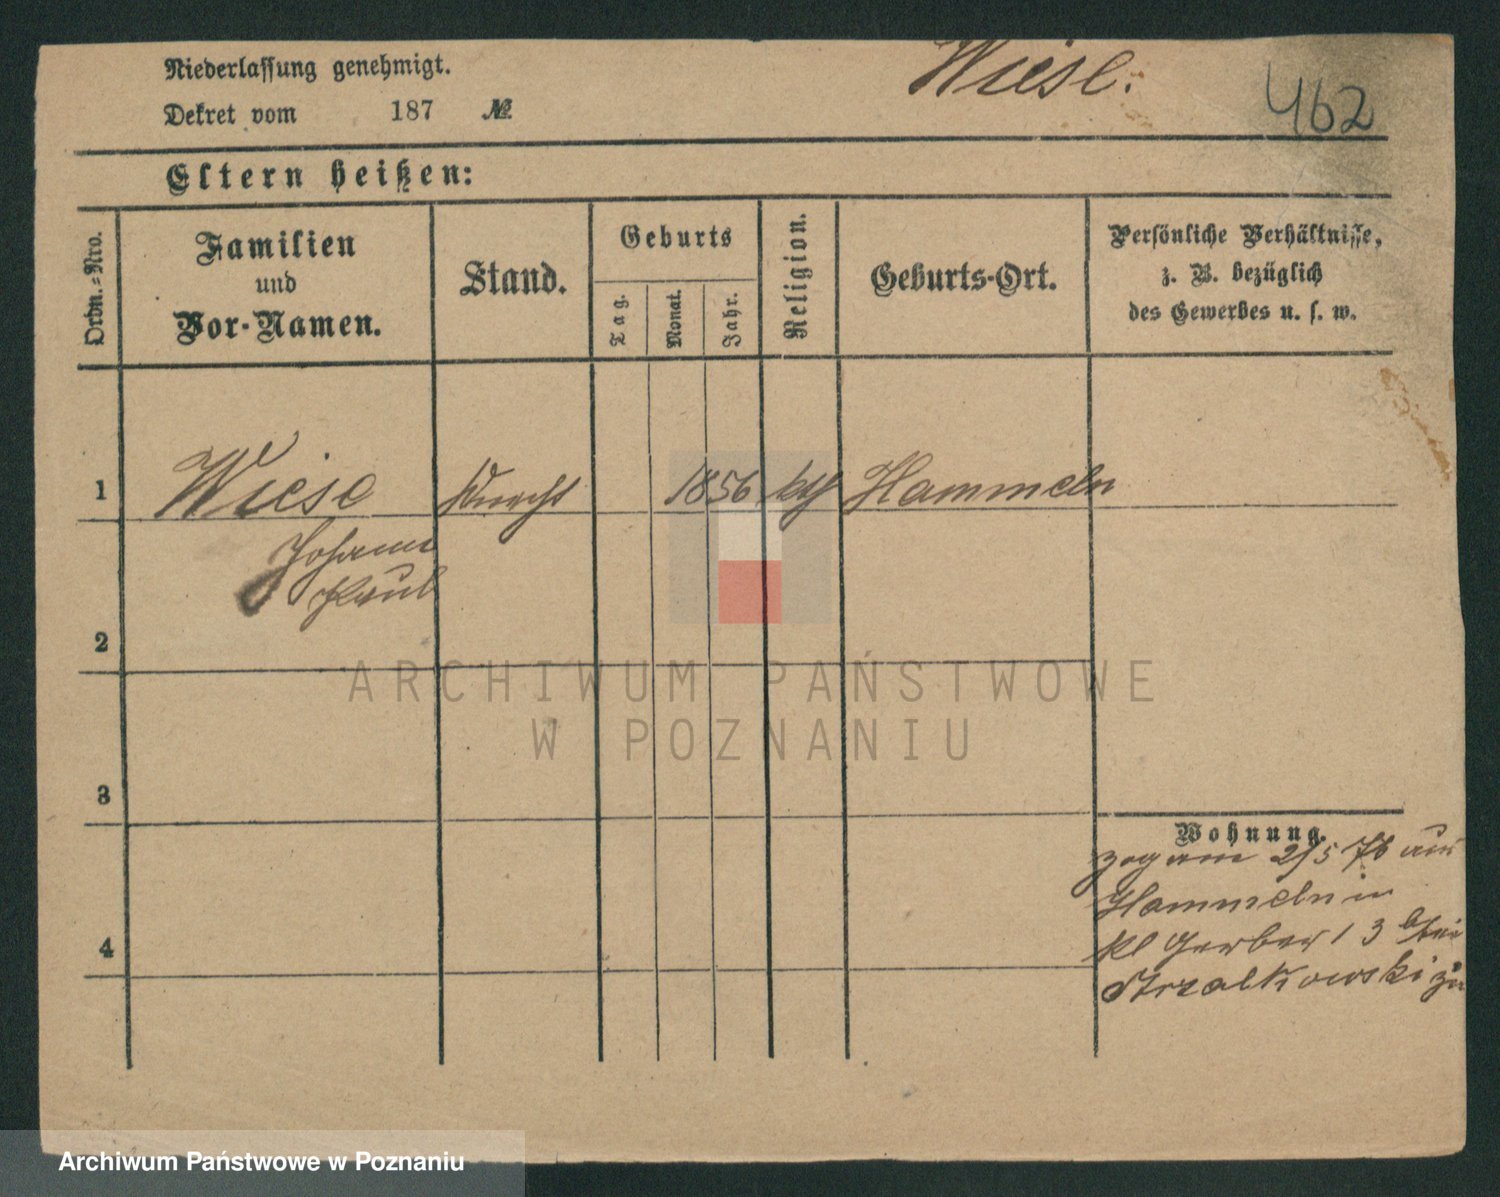 Niederlassung genehmigt.
Wiese.
462
Dekret vom 187 №
Eltern heißen:
Ordn.-Nro.
Familien
und
Vor-Namen.
Stand.
Geburts
Tag.
Monat.
Jahr.
Religion.
Geburts-Ort.
Persönliche Verhältnisse,
z. B. bezüglich
des Gewerbes u. s. w.
1
Wiese Knecht 1856 kth Hammeln
Johann
Paul
2
ARCHIWUM PAŃSTWOWE
W POZNANIU
3
Wohnung.
zog am 2/5 76 aus
Hammeln in
kl Gerber 13 bei
Strzalkowski zu
4
Archiwum Państwowe w Poznaniu